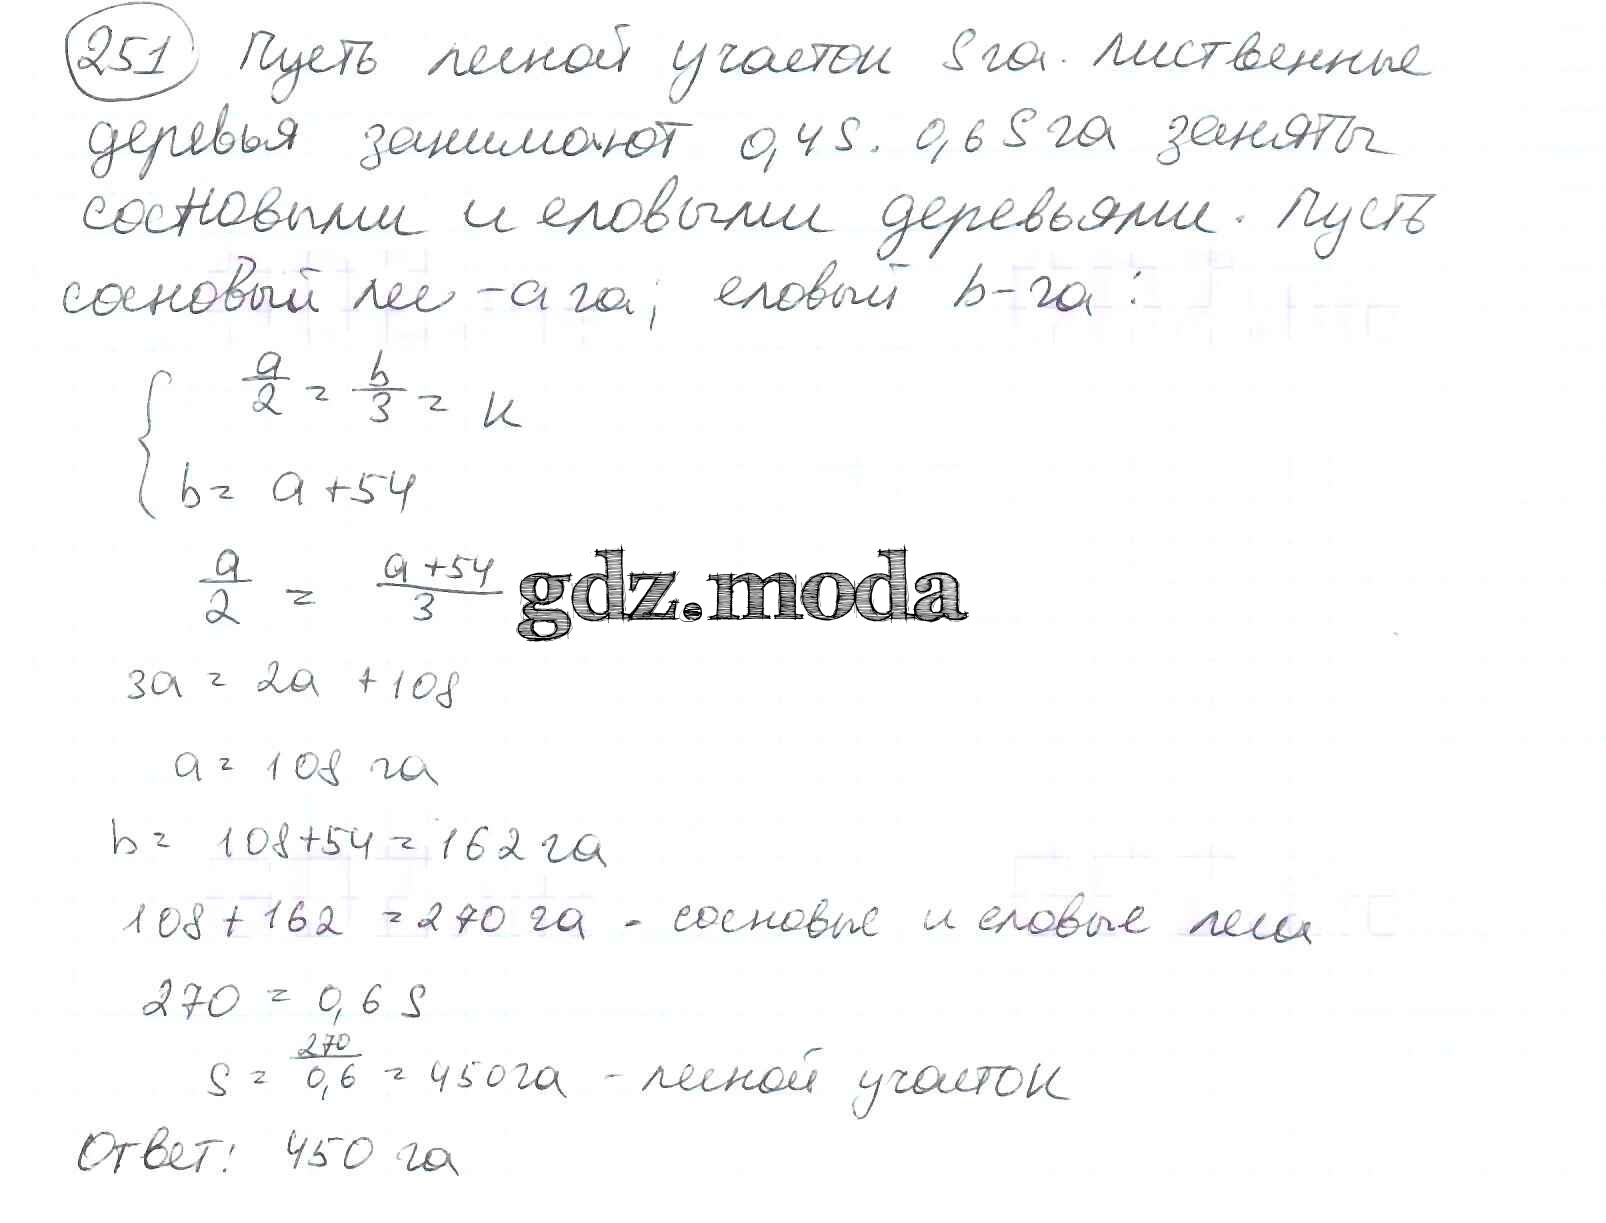 251 Пусть лесной участок S га. Лиственные
деревья занимают 0,4S. 0,6S га заняты
сосновыми и еловыми деревьями. Пусть
сосновый лес - a га; еловый b - га:
a/2 = b/3 = к
b = a + 54
a/2 = (a + 54)/3
gdz.moda
3a = 2a + 108
a = 108 га
b = 108 + 54 = 162 га
108 + 162 = 270 га - сосновые и еловые леса
270 = 0,6 S
S = 270/0,6 = 450 га - лесной участок
Ответ: 450 га